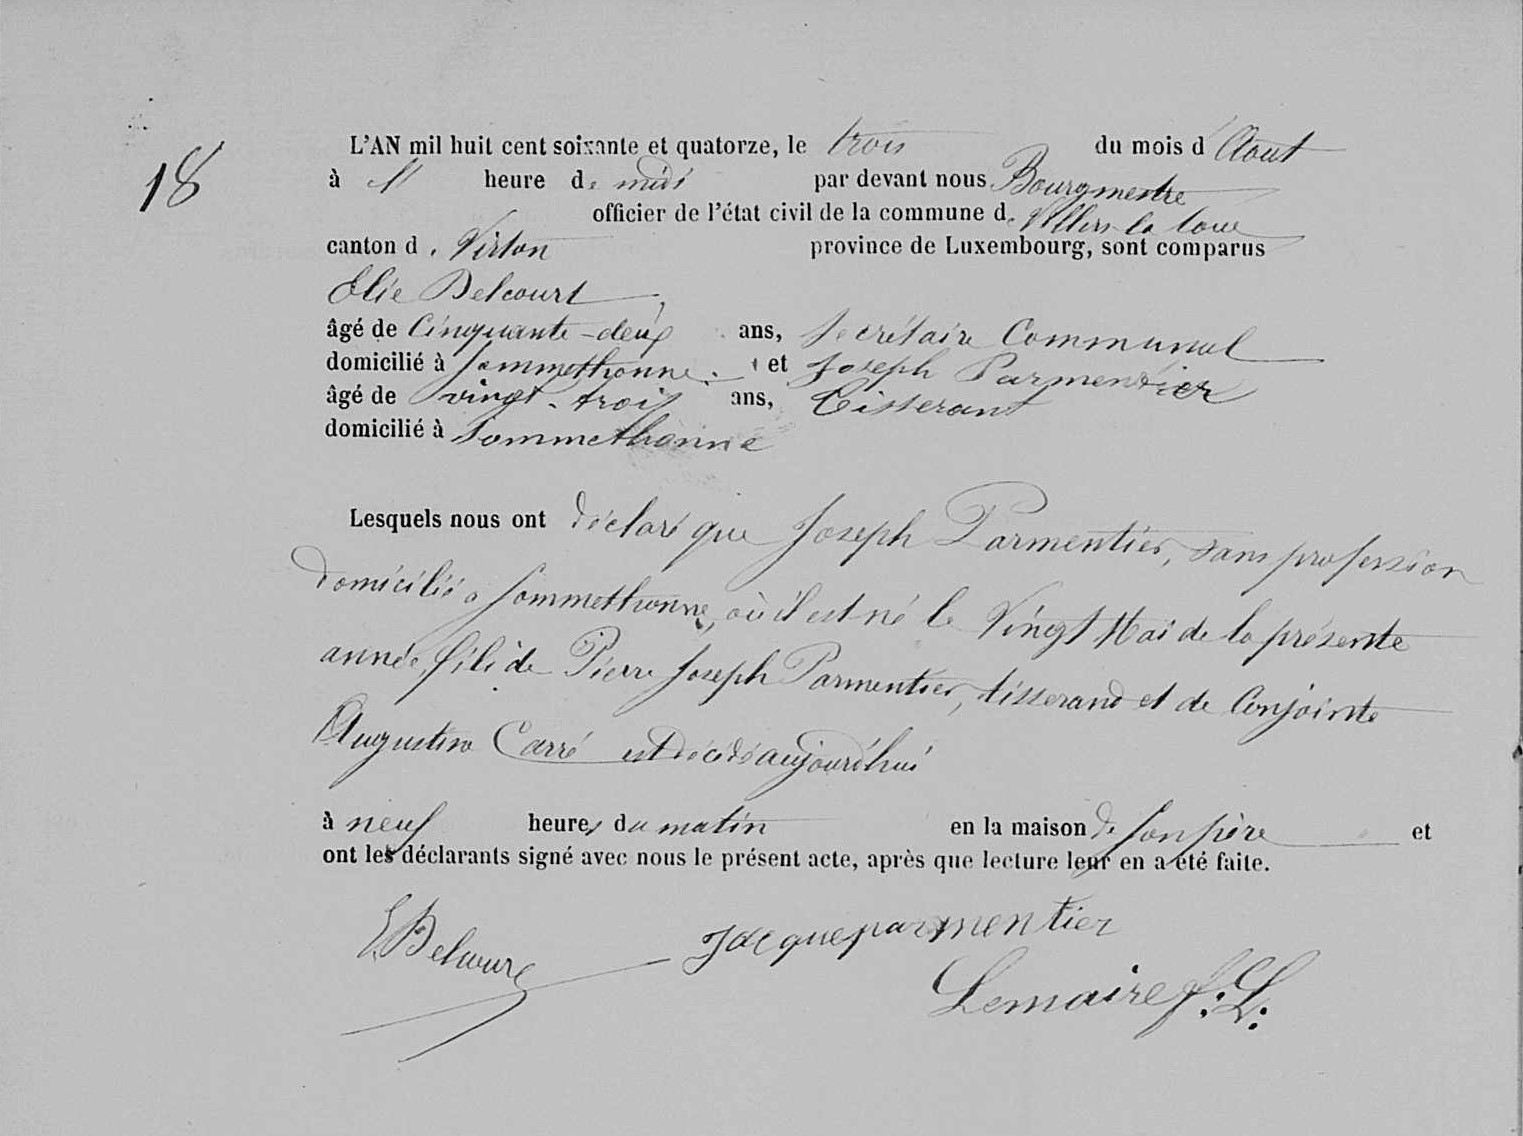 18
L'AN mil huit cent soixante et quatorze, le trois du mois d'Aout
à 11 heure de midi par devant nous Bourgmestre
officier de l'état civil de la commune de Villers la loue
canton de Virton province de Luxembourg, sont comparus
Elie Delcourt
âgé de Cinquante-deux ans, Secrétaire Communal
domicilié à Sommethonne et Joseph Parmentier
âgé de vingt-trois ans, Tisserant
domicilié à Sommethonne
Lesquels nous ont déclaré que Joseph Parmentier, sans profession
domicilié à Sommethonne, où il est né le Vingt Mai de la présente
année, fils de Pierre Joseph Parmentier, tisserand et de Conjointe
Augustine Carré est décédé aujourd'hui
à neuf heures du matin en la maison de son père et
ont les déclarants signé avec nous le présent acte, après que lecture leur en a été faite.
E Delcourt Jacqueparmentier
Lemaire f. L.